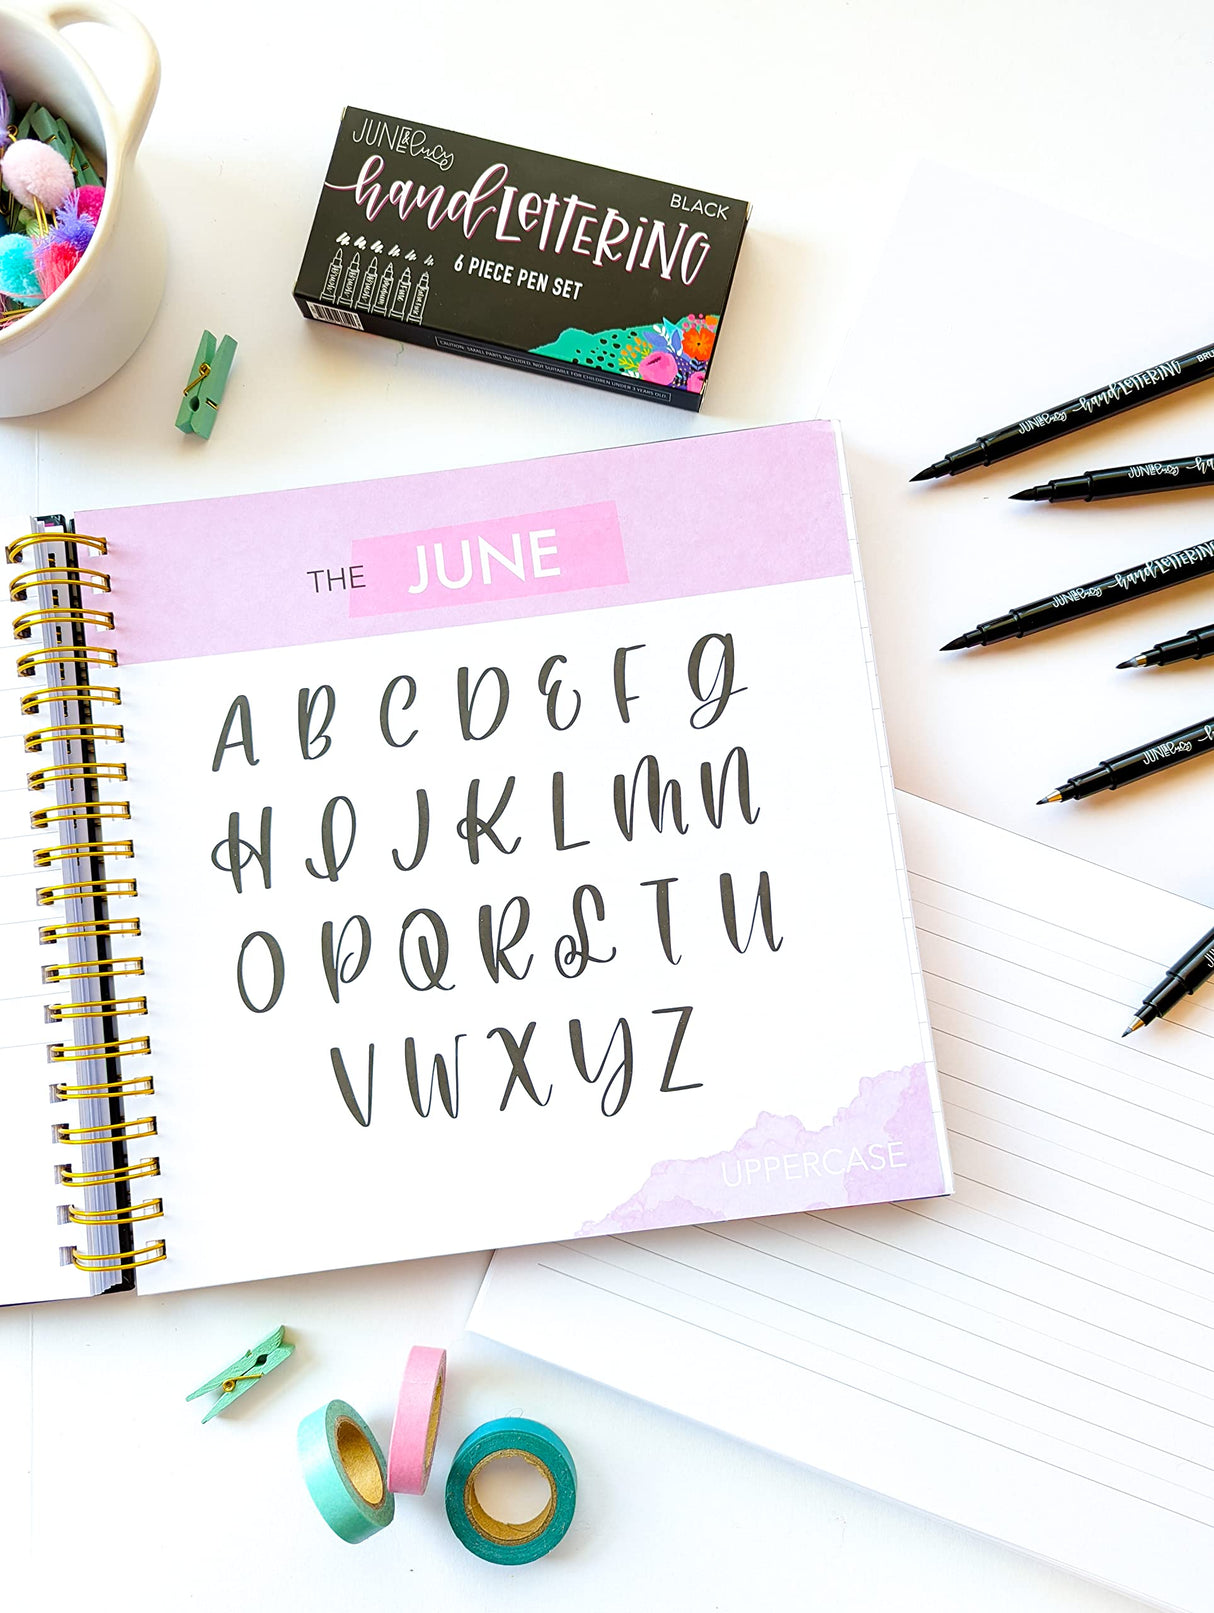 JUNE & Lucy
BLACK
hand LETTERING
6 PIECE PEN SET
CAUTION: SMALL PARTS INCLUDED. NOT SUITABLE FOR CHILDREN UNDER 3 YEARS OLD.
THE JUNE
A B C D E F G
H I J K L M N
O P Q R S T U
V W X Y Z
UPPERCASE
JUNE & Lucy hand LETTERING
JUNE & Lucy
JUNE & Lucy hand LETTERING
JUNE & Lucy